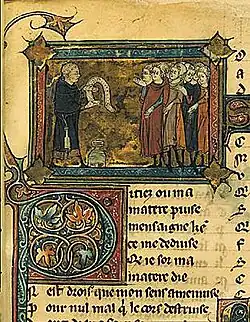 Pitiez ou ma
matere puise
mensaigne ke
ce me deduise
Q ie sor ma
matere die
N est drois que mon sens amenuise
P our nul mal q le cors destruise